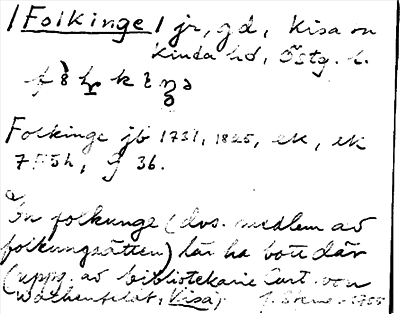 Folkinge jr, gd, Kisa sn
Kinda hd, Östg. l.
Folkinge jb 1731, 1825, ek, ek
7F5h, J 36.
En folkunge (dvs. medlem av
folkungaätten) lär ha bott där
(uppg. av bibliotekarie Curt von
Wachenfeldt, Kisa)